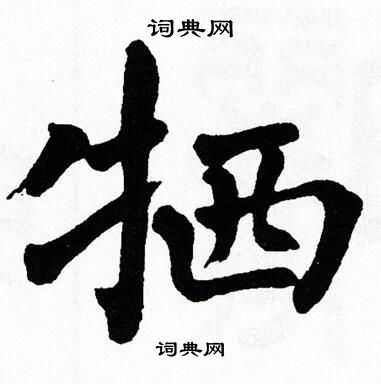 词典网
牺
词典网